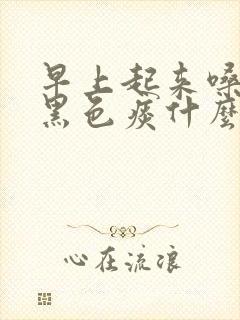 早上起来嗓
黑色痰什麼
心在流浪